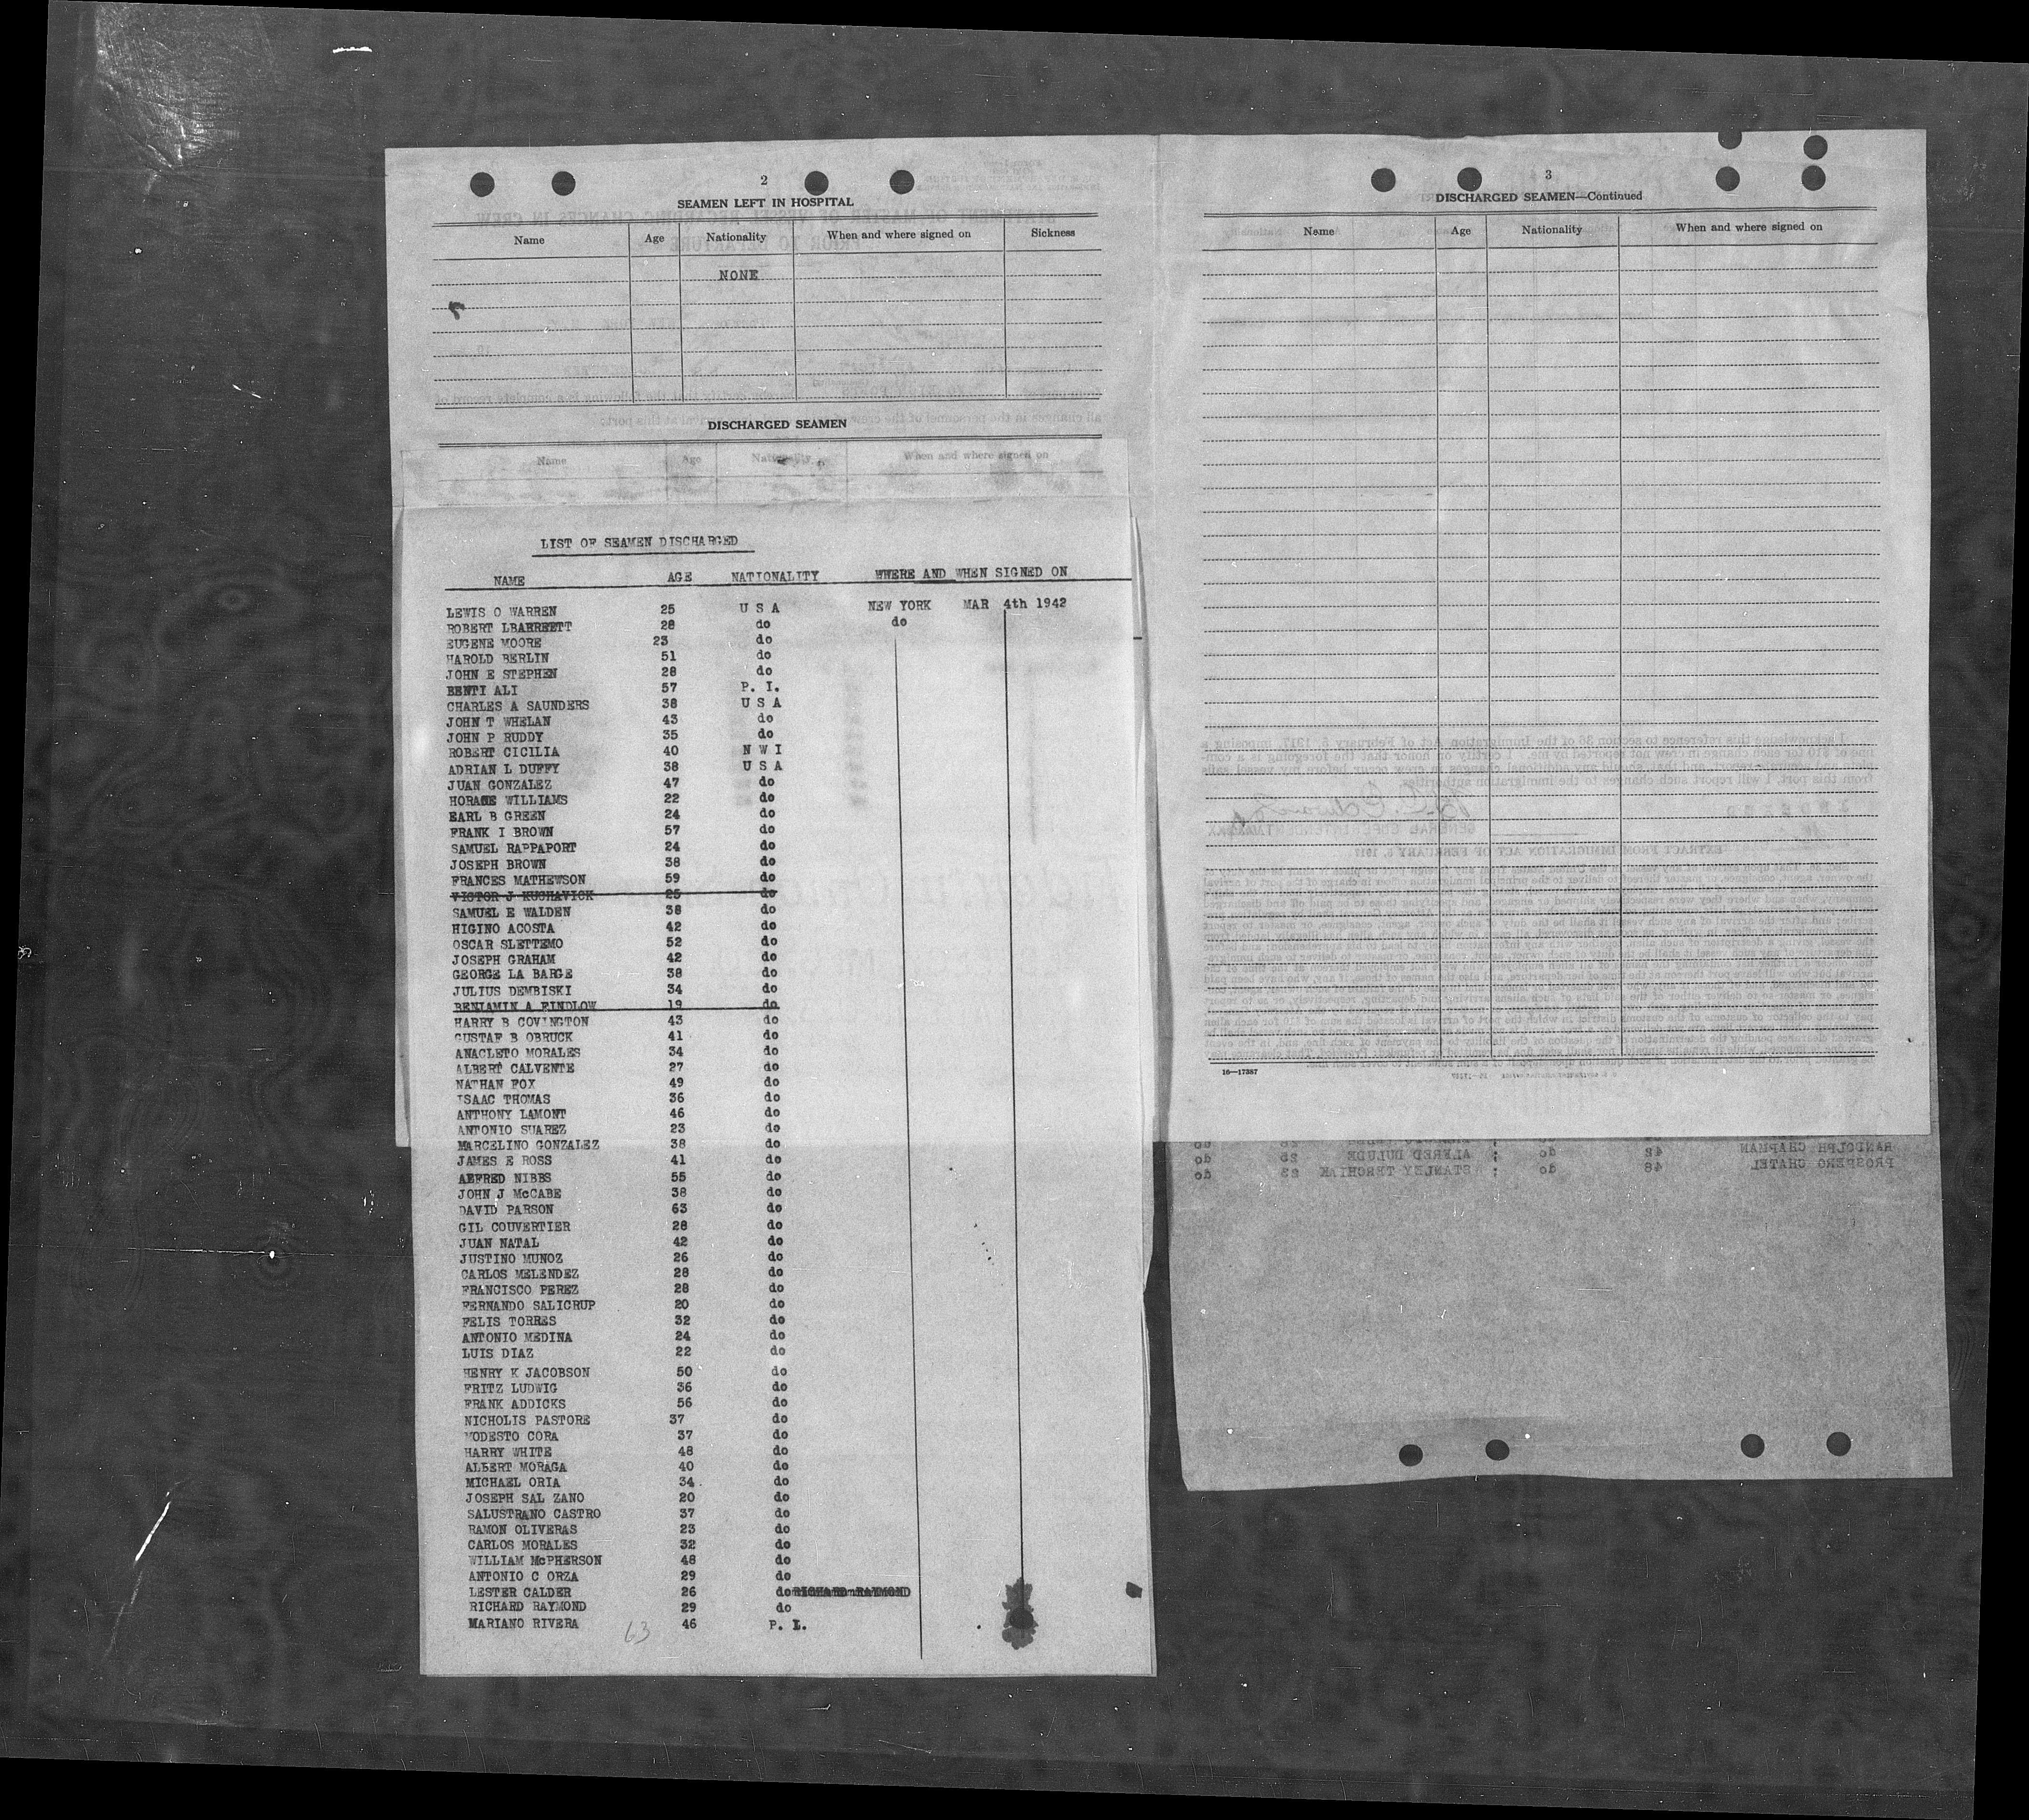 2
SEAMEN LEFT IN HOSPITAL
Name Age Nationality When and where signed on Sickness
NONE
DISCHARGED SEAMEN
Name Age Nationality When and where signed on
LIST OF SEAMEN DISCHARGED
NAME AGE NATIONALITY WHERE AND WHEN SIGNED ON
LEWIS O WARREN 25 U S A NEW YORK MAR 4th 1942
ROBERT LBARRETT 28 do do
EUGENE MOORE 23 do
HAROLD BERLIN 51 do
JOHN E STEPHEN 28 do
BENTI ALI 57 P. I.
CHARLES A SAUNDERS 38 U S A
JOHN T WHELAN 43 do
JOHN P RUDDY 35 do
ROBERT CICILIA 40 N W I
ADRIAN L DUFFY 38 U S A
JUAN GONZALEZ 47 do
HORACE WILLIAMS 22 do
EARL B GREEN 24 do
FRANK I BROWN 57 do
SAMUEL RAPPAPORT 24 do
JOSEPH BROWN 38 do
FRANCES MATHEWSON 59 do
VICTOR J KUCHAVICK 25 do
SAMUEL E WALDEN 38 do
HIGINO ACOSTA 42 do
OSCAR SLETTEMO 52 do
JOSEPH GRAHAM 42 do
GEORGE LA BARGE 38 do
JULIUS DEMBISKI 34 do
BENJAMIN A FINDLOW 19 do
HARRY B COVINGTON 43 do
GUSTAF B OBRUCK 41 do
ANACLETO MORALES 34 do
ALBERT CALVENTE 27 do
NATHAN FOX 49 do
ISAAC THOMAS 36 do
ANTHONY LAMONT 46 do
ANTONIO SUAREZ 23 do
MARCELINO GONZALEZ 38 do
JAMES E ROSS 41 do
ALFRED NIBBS 55 do
JOHN J McCABE 38 do
DAVID PARSON 63 do
GIL COUVERTIER 28 do
JUAN NATAL 42 do
JUSTINO MUNOZ 26 do
CARLOS MELENDEZ 28 do
FRANCISCO PEREZ 28 do
FERNANDO SALICRUP 20 do
FELIS TORRES 32 do
ANTONIO MEDINA 24 do
LUIS DIAZ 22 do
HENRY K JACOBSON 50 do
FRITZ LUDWIG 36 do
FRANK ADDICKS 56 do
NICHOLIS PASTORE 37 do
MODESTO CORA 37 do
HARRY WHITE 48 do
ALBERT MORAGA 40 do
MICHAEL ORIA 34 do
JOSEPH SAL ZANO 20 do
SALUSTRANO CASTRO 37 do
RAMON OLIVERAS 23 do
CARLOS MORALES 32 do
WILLIAM McPHERSON 48 do
ANTONIO C ORZA 29 do
LESTER CALDER 26 do RICHARD RAYMOND
RICHARD RAYMOND 29 do
MARIANO RIVERA 46 P. I.
63
3
DISCHARGED SEAMEN—Continued
Name Age Nationality When and where signed on
16—17387
RANDOLPH CHAPMAN 42 do ; ALFRED DULUDE 25 do
PROSPERO CHATEL 48 do ; STANLEY TERCHIAK 23 do